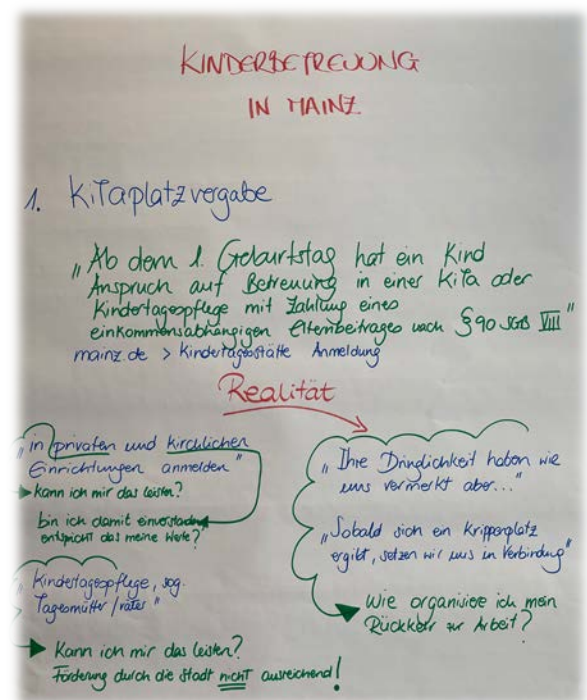 KINDERBETREUUNG
IN MAINZ
1. Kitaplatzvergabe
„Ab dem 1. Geburtstag hat ein Kind
Anspruch auf Betreuung in einer Kita oder
Kindertagespflege mit Zahlung eines
einkommensabhängigen Elternbeitrages nach § 90 SGB VIII"
mainz.de > Kindertagesstätte Anmeldung
Realität
„in privaten und kirchlichen
Einrichtungen anmelden"
kann ich mir das leisten?
bin ich damit einverstanden
entspricht das meine Werte?
„Kindertagespflege, sog.
Tagesmütter/väter"
Kann ich mir das leisten?
Förderung durch die Stadt nicht ausreichend!
„Ihre Dringlichkeit haben wir
uns vermerkt aber..."
„Sobald sich ein Krippenplatz
ergibt, setzen wir uns in Verbindung"
Wie organisiere ich mein
Rückkehr zur Arbeit?